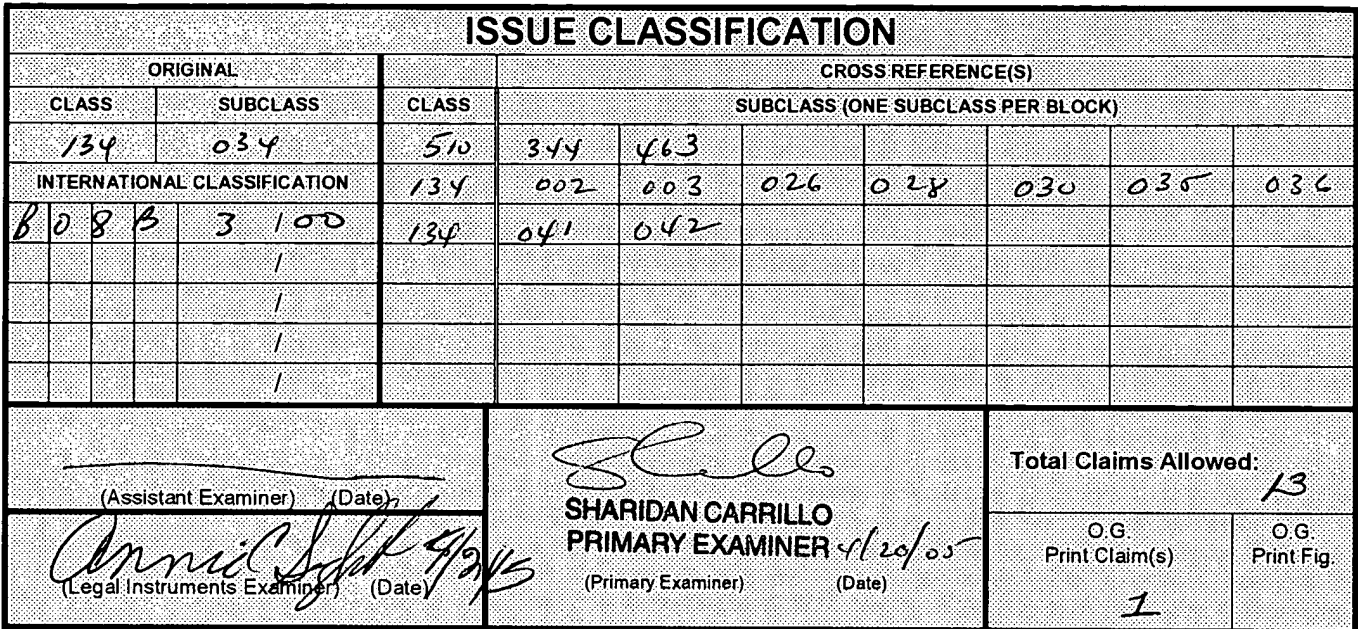 ISSUE CLASSIFICATION
ORIGINAL CROSS REFERENCE(S)
CLASS SUBCLASS CLASS SUBCLASS (ONE SUBCLASS PER BLOCK)
134 034 510 344 463
INTERNATIONAL CLASSIFICATION 134 002 003 026 028 030 035 036
B 0 8 B 3 / 00 134 041 042
/
/
/
/
Total Claims Allowed:
13
(Assistant Examiner) (Date)
SHARIDAN CARRILLO
PRIMARY EXAMINER 4/20/05
(Primary Examiner) (Date)
(Legal Instruments Examiner) (Date)
O.G.
Print Claim(s)
1
O.G.
Print Fig.